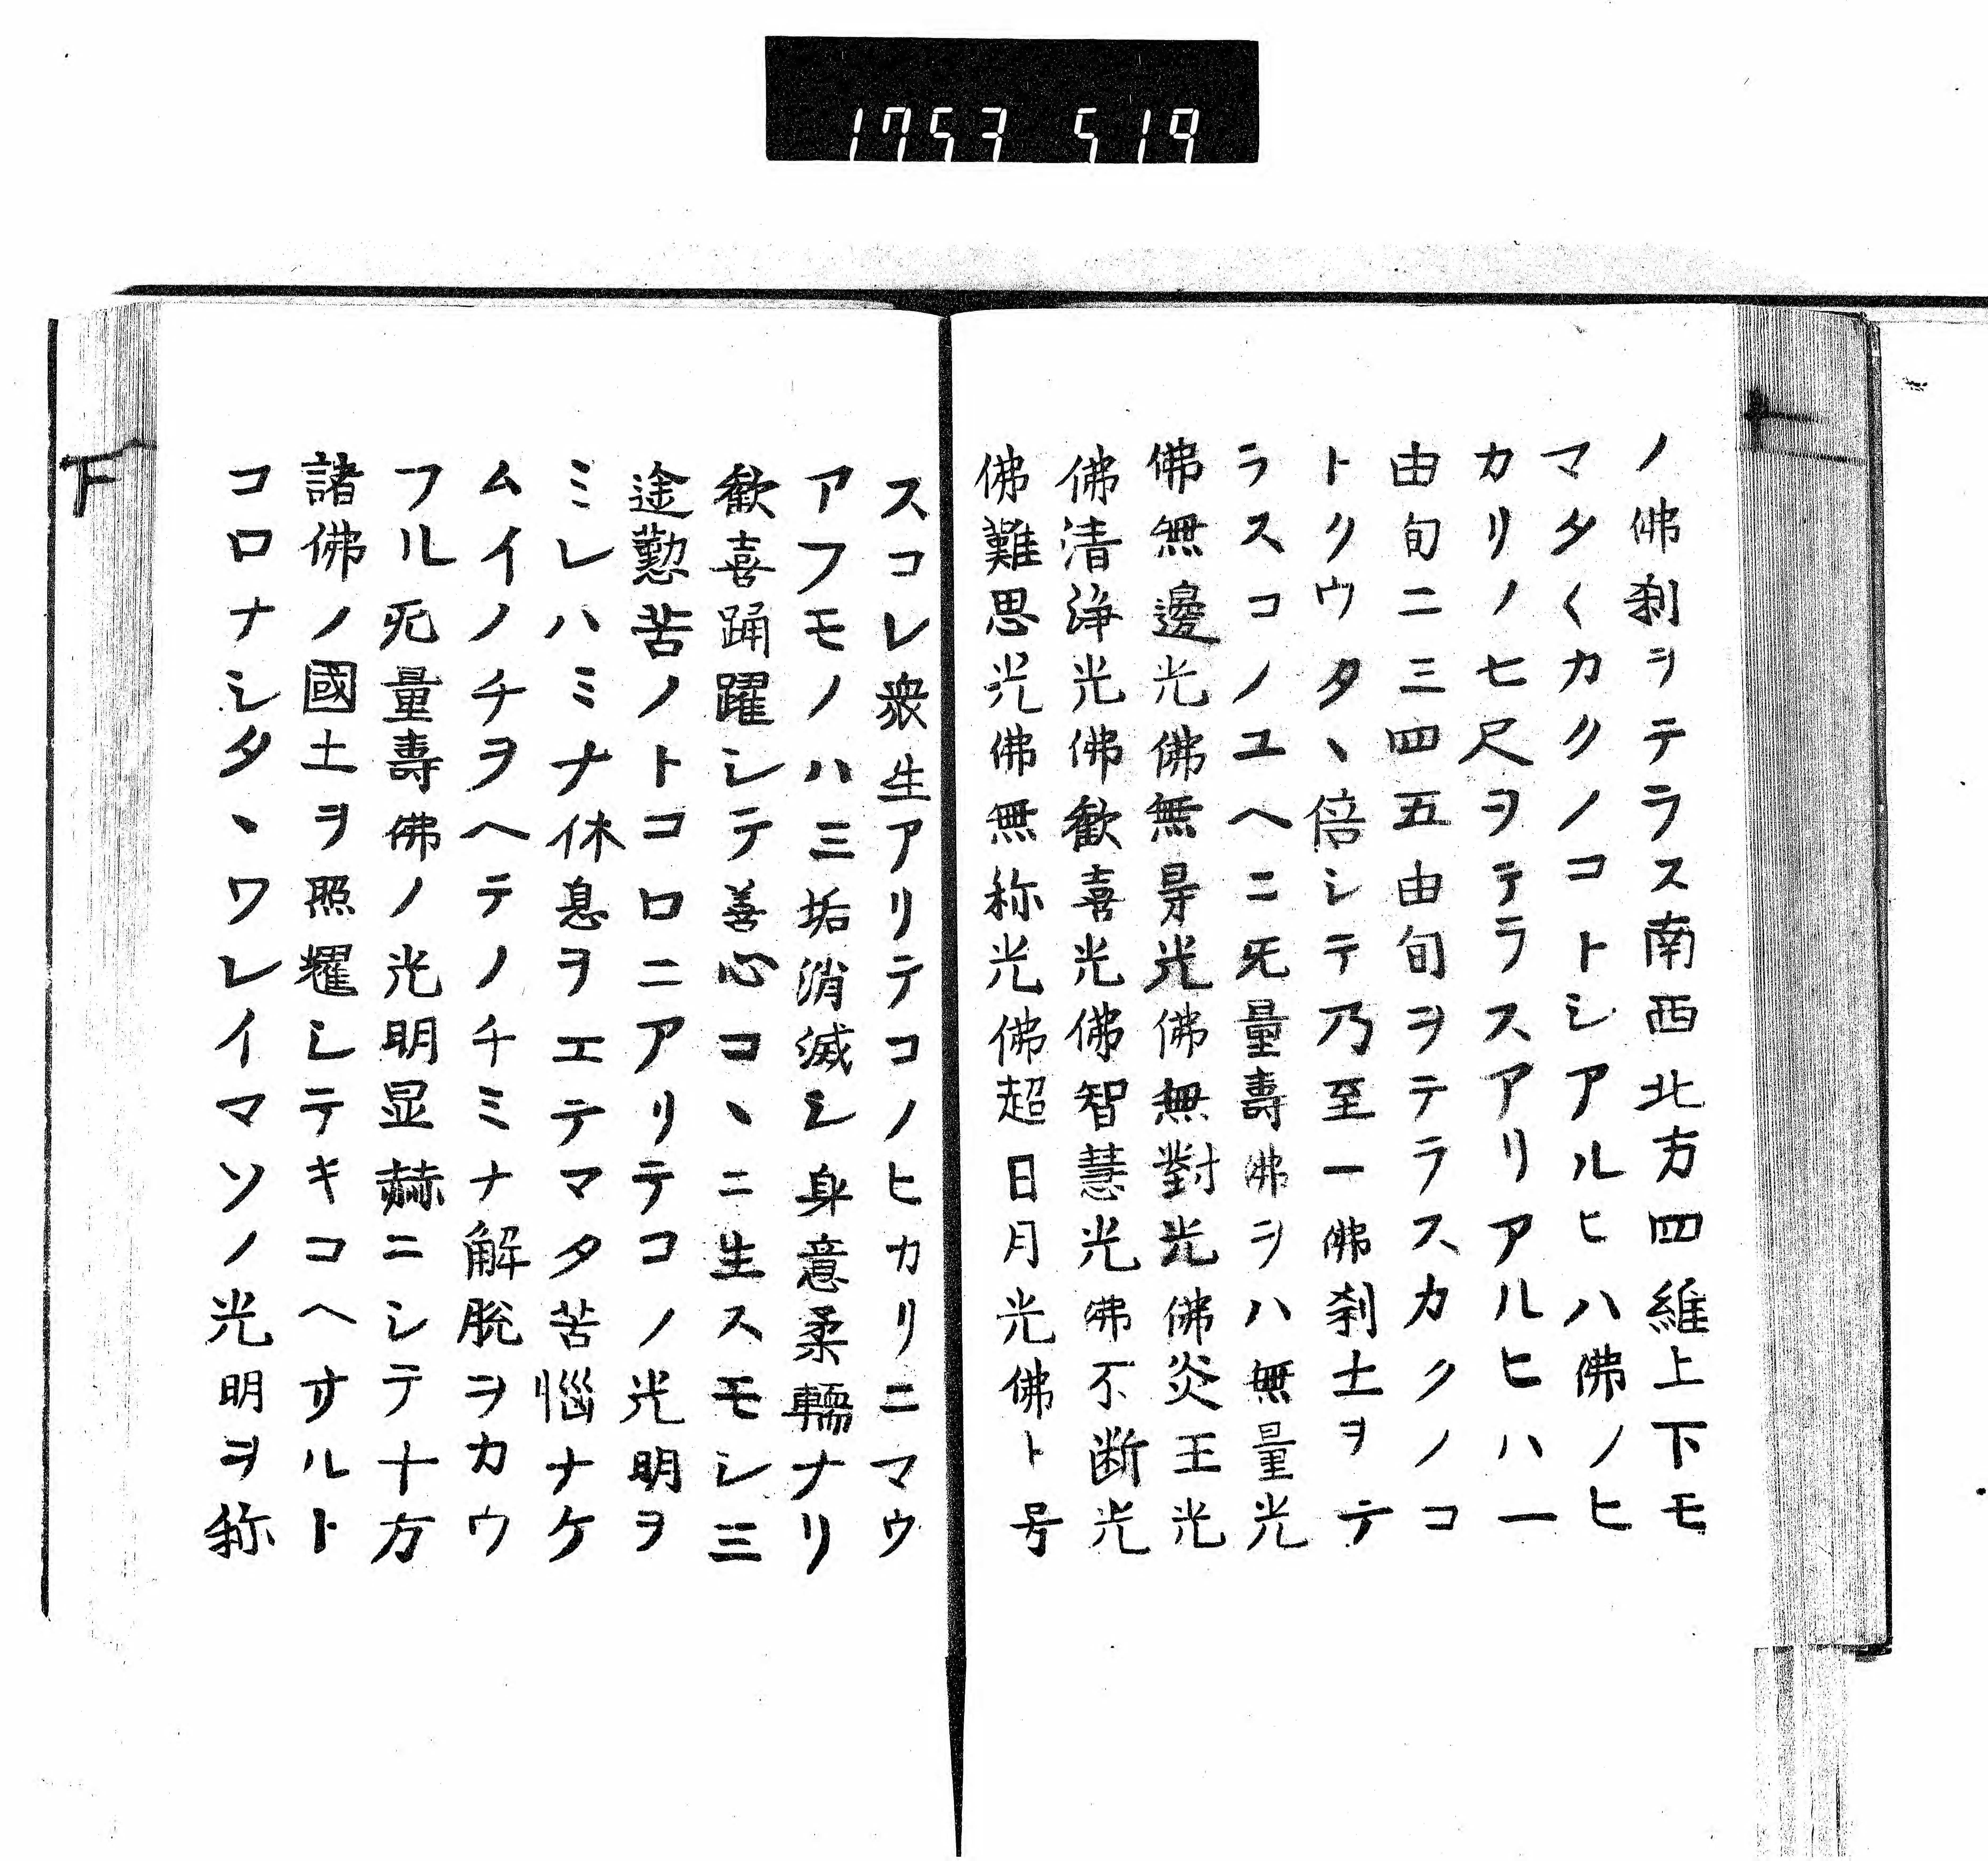 1753 519
ノ佛刹ヲテラス南西北方四維上下モ
マタ〱カクノコトシアルヒハ佛ノヒ
カリノ七尺ヲテラスアリアルヒハ一
由旬二三四五由旬ヲテラスカクノコ
トクウタヽ倍シテ乃至一佛刹土ヲテ
ラスコノユヘニ旡量壽佛ヲハ無量光
佛無邊光佛無㝵光佛無對光佛炎王光
佛清浄光佛歓喜光佛智慧光佛不断光
佛難思光佛無称光佛超日月光佛ト号
スコレ衆生アリテコノヒカリニマウ
アフモノハ三垢消滅シ身意柔軟ナリ
歓喜踊躍シテ善心コヽニ生スモシ三
途懃苦ノトコロニアリテコノ光明ヲ
ミレハミナ休息ヲエテマタ苦惱ナケ
ムイノチヲヘテノチミナ解脱ヲカウ
フル旡量壽佛ノ光明显赫ニシテ十方
諸佛ノ國土ヲ照耀シテキコヘサルト
コロナシタヽワレイマソノ光明ヲ称
下